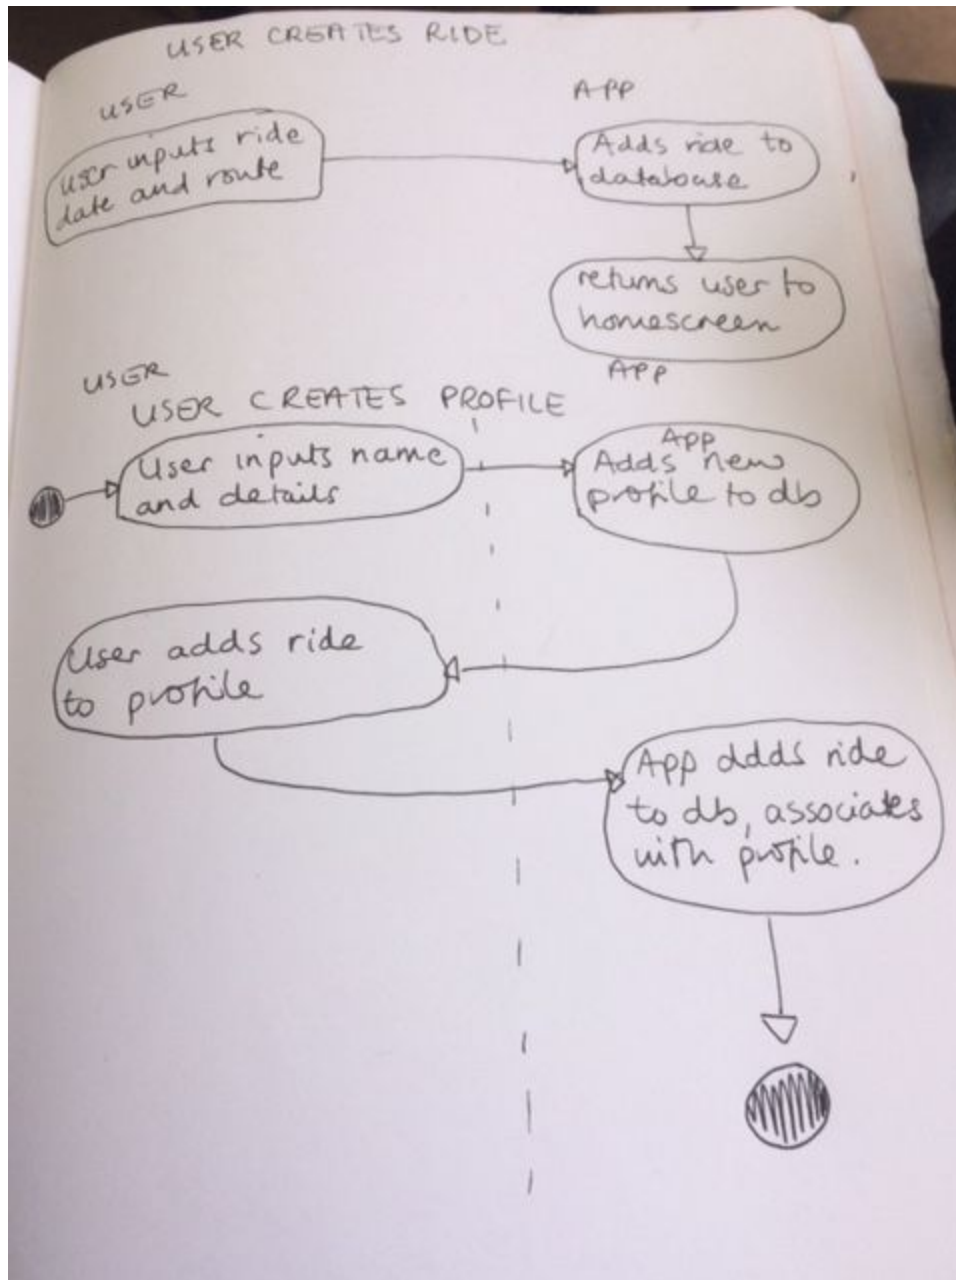 USER CREATES RIDE
USER
APP
User inputs ride
date and route
Adds ride to
database
returns user to
homescreen
USER
APP
USER CREATES PROFILE
User inputs name
and details
APP
Adds new
profile to db
User adds ride
to profile
App ddds ride
to db, associates
with profile.